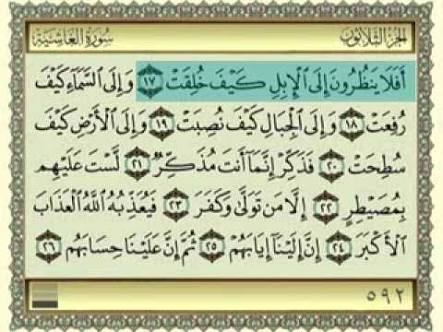 الجزء الثلاثون سورة الغاشية
أَفَلَا يَنظُرُونَ إِلَى ٱلْإِبِلِ كَيْفَ خُلِقَتْ ١٧ وَإِلَى ٱلسَّمَآءِ كَيْفَ
رُفِعَتْ ١٨ وَإِلَى ٱلْجِبَالِ كَيْفَ نُصِبَتْ ١٩ وَإِلَى ٱلْأَرْضِ كَيْفَ
سُطِحَتْ ٢٠ فَذَكِّرْ إِنَّمَآ أَنتَ مُذَكِّرٌ ٢١ لَّسْتَ عَلَيْهِم
بِمُصَيْطِرٍ ٢٢ إِلَّا مَن تَوَلَّىٰ وَكَفَرَ ٢٣ فَيُعَذِّبُهُ ٱللَّهُ ٱلْعَذَابَ
ٱلْأَكْبَرَ ٢٤ إِنَّ إِلَيْنَآ إِيَابَهُمْ ٢٥ ثُمَّ إِنَّ عَلَيْنَا حِسَابَهُم ٢٦
٥٩٢